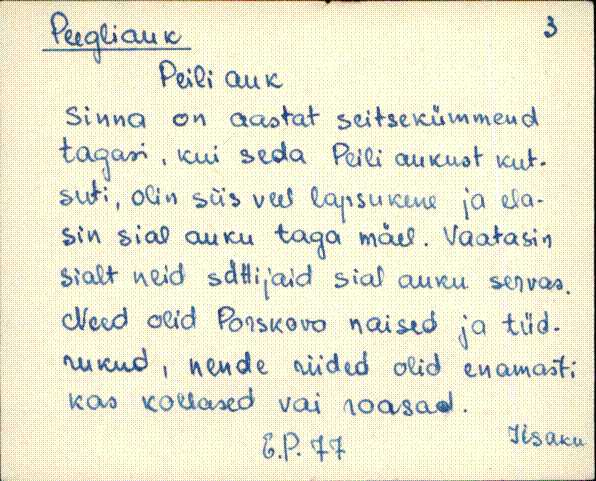 Peegliauk
3
Peili auk
Sinna on aastat seitsekümmend
tagasi, kui seda Peili aukust kut-
suti, olin siis veel lapsukene ja ela-
sin sial auku taga mäel. Vaatasin
sialt neid sõttijaid sial auku servas.
Need olid Porskovo naised ja tüd-
rukud, nende riided olid enamasti
kas kollased vai roosad.
E.P. 77
Iisaku